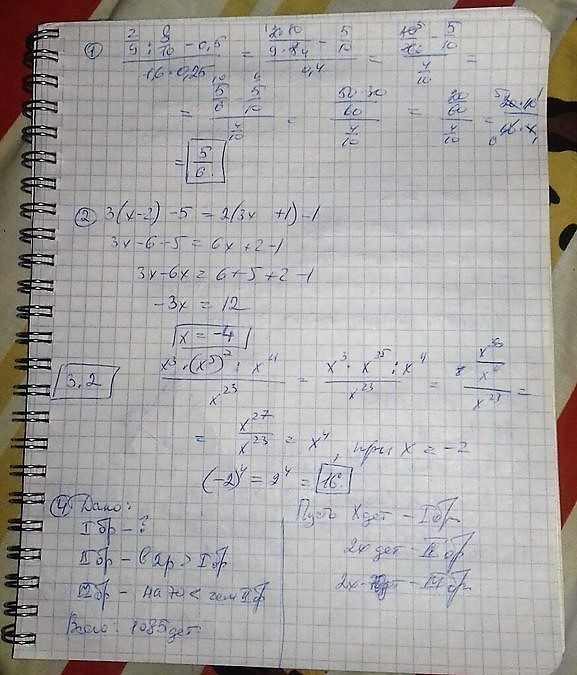 ① (2/9 : 9/10 − 0,5) / (1,6 · 0,25) = (2·10 / 9·8 − 5/10) / 0,4 = (5 − 5/10) / (4/10) =
= (5/6 − 5/10) / (4/10) = (50 − 30 / 60) / (4/10) = (20/60) / (4/10) = 20·10 / 60·4
= 5/6
② 3(x−2) −5 = 2(3x +1) −1
3x −6 −5 = 6x +2 −1
3x −6x = 6 +5 +2 −1
−3x = 12
x = −4
3.2 (x³ · (x⁵)⁷ : x⁴) / x²³ = (x³ · x³⁵ : x⁴) / x²³ = (x³⁸ / x⁴) / x²³ =
= x²⁷ / x²³ = x⁴, при x = −2
(−2)⁴ = 2⁴ = 16
④ Дано:
I бр − ?
II бр − в 2р > I бр
III бр − на 70 < чем II бр
Всего: 1085 дет
Пусть x дет − I бр
2x дет − II бр
2x−70 дет − III бр